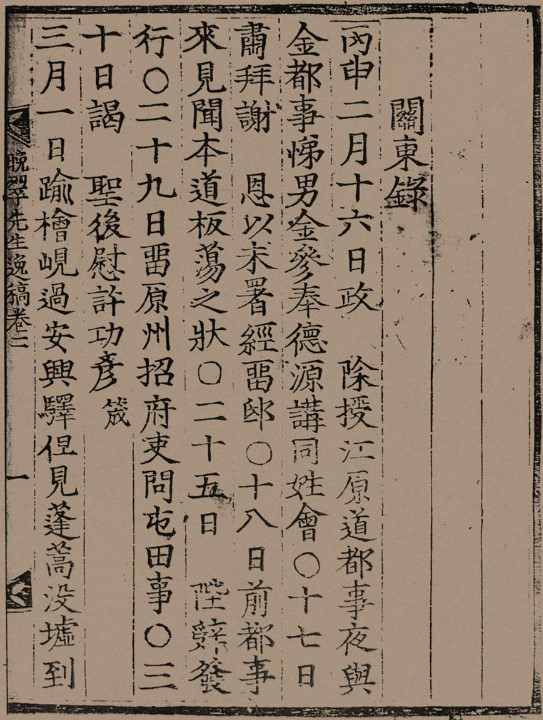 關東錄
丙申二月十六日政　除授江原道都事夜與
金都事悌男金參奉德源講同姓會○十七日
肅拜謝　恩以未署經留邸○十八日前都事
來見聞本道板蕩之狀○二十五日　陛辭發
行○二十九日留原州招府吏問屯田事○三
十日謁　聖後慰許功彦筬
三月一日踰檜峴過安興驛但見蓬蒿没墟到
晩翠先生逸稿卷二　一